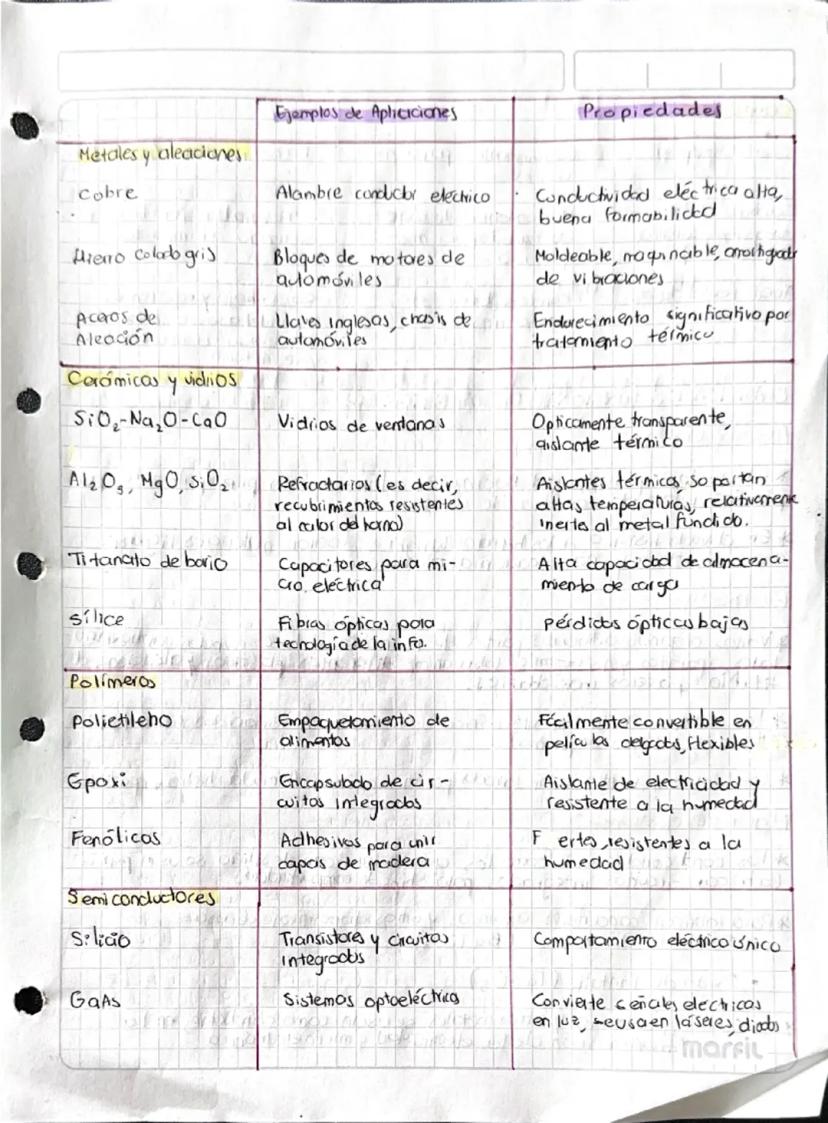 Ejemplos de Aplicaciones
Propiedades
Metales y aleaciones
Cobre
Alambre conductor eléctrico
Conductividad eléctrica alta,
buena formabilidad
Hierro colado gris
Bloques de motores de
automóviles
Moldeable, maquinable, amortiguador
de vibraciones
Aceros de
Aleación
Llaves inglesas, chasis de
automóviles
Endurecimiento significativo por
tratamiento térmico
Cerámicas y vidrios
SiO₂-Na₂O-CaO
Vidrios de ventanas
Opticamente transparente,
aislante térmico
Al₂O₃, MgO, SiO₂
Refractarios (es decir,
recubrimientos resistentes
al calor del horno)
Aislantes térmicos, soportan
altas temperaturas, relativamente
inerte al metal fundido.
Titanato de bario
Capacitores para mi-
cro. eléctrica
Alta capacidad de almacena-
miento de carga
Sílice
Fibras ópticas para
tecnología de la info.
Pérdidas ópticas bajas
Polímeros
Polietileno
Empaquetamiento de
alimentos
Fácilmente convertible en
películas delgadas, flexibles
Epoxi
Encapsulado de cir-
cuitos integrados
Aislante de electricidad y
resistente a la humedad
Fenólicos
Adhesivos para unir
capas de madera
F ertes, resistentes a la
humedad
Semiconductores
Silicio
Transistores y circuitos
integrados
Comportamiento eléctrico único
GaAs
Sistemas optoeléctrico
Convierte señales electricas
en luz, se usa en láseres, diodos
marfil